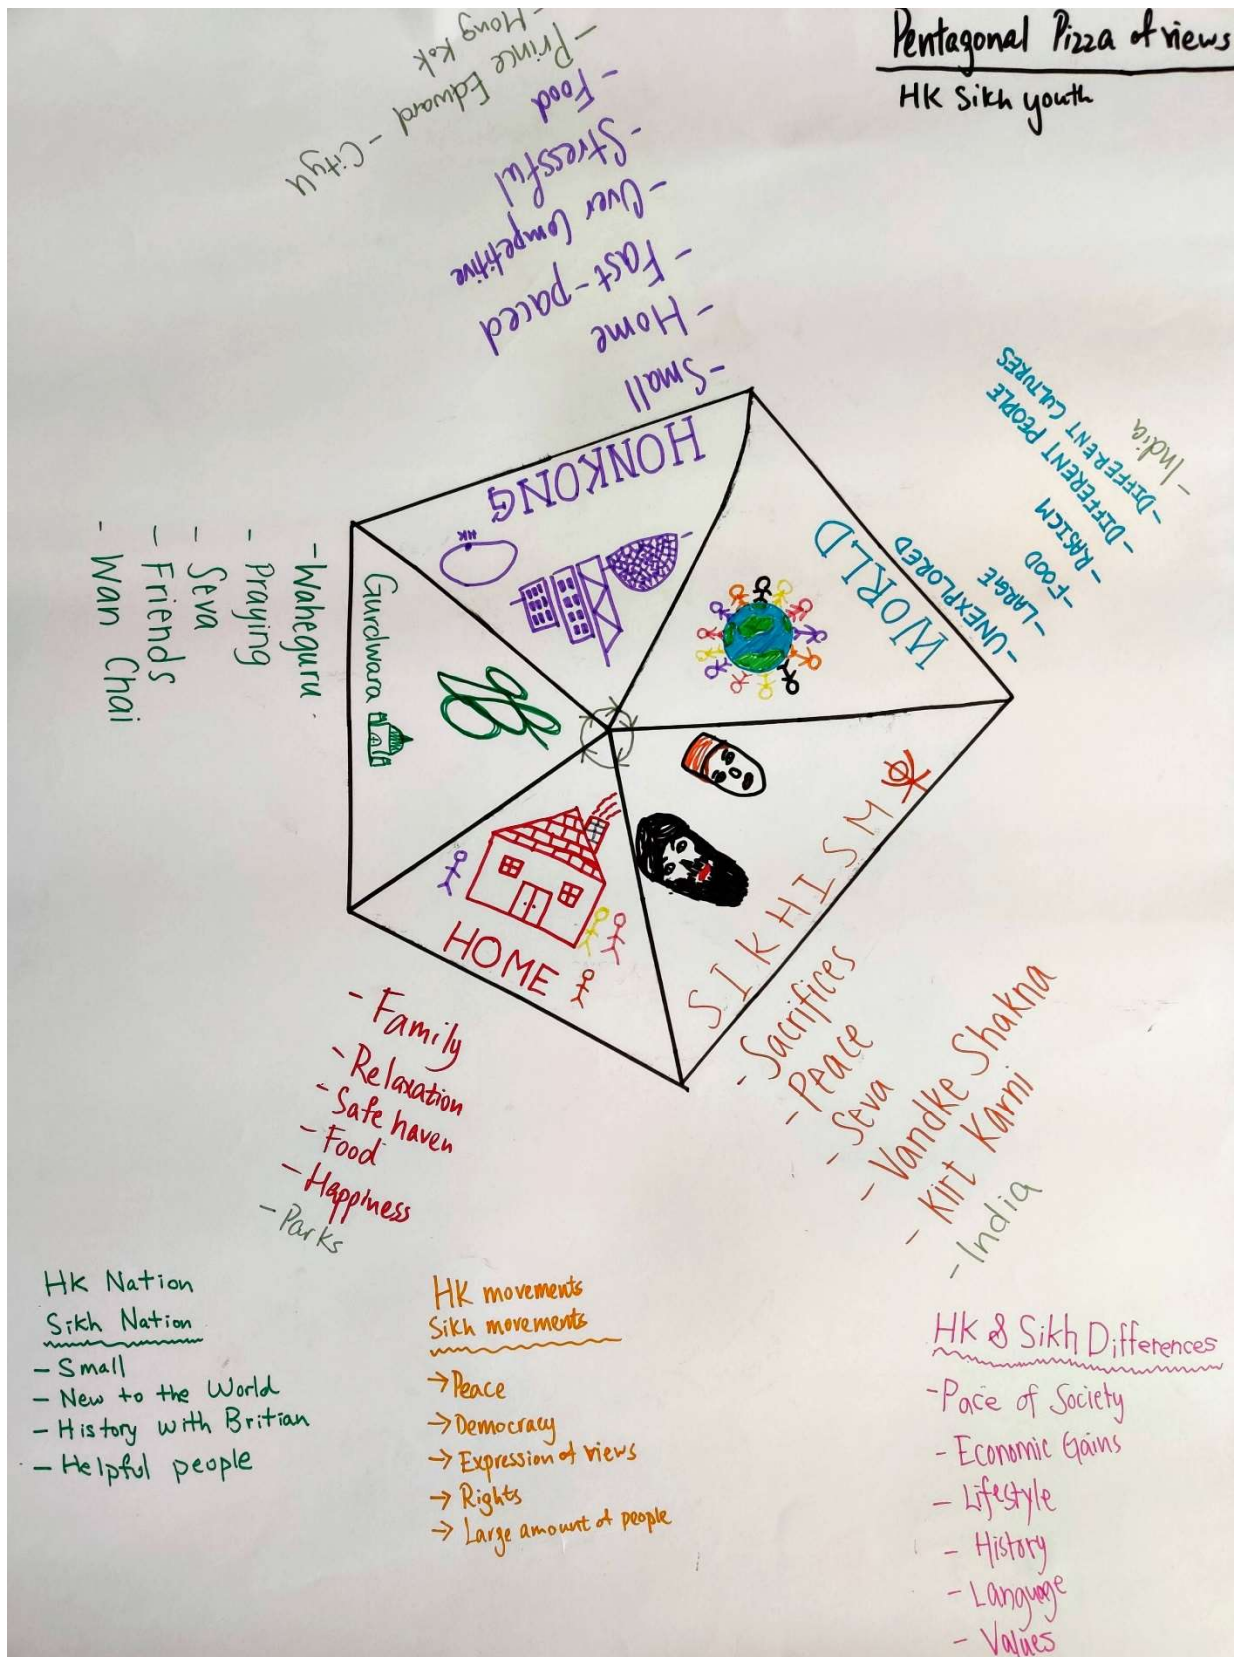 Pentagonal Pizza of views
HK Sikh youth
HONKONG
HK
- Small
- Home
- Fast-paced
- Over Competitive
- Stressful
- Food
- Prince Edward - CityU
- Mong Kok
WORLD
- UNEXPLORED
- LARGE
- FOOD
- RASICM
- DIFFERENT PEOPLE
- DIFFERENT CULTURES
- India
SIKHISM
- Sacrifices
- Peace
- Seva
- Vandke Shakna
- Kirt Karni
- India
HOME
- Family
- Relaxation
- Safe haven
- Food
- Happiness
- Parks
Gurdwara
- Waheguru
- Praying
- Seva
- Friends
- Wan Chai
HK Nation
Sikh Nation
- Small
- New to the World
- History with Britian
- Helpful people
HK movements
Sikh movements
→ Peace
→ Democracy
→ Expression of views
→ Rights
→ Large amount of people
HK & Sikh Differences
- Pace of Society
- Economic Gains
- Lifestyle
- History
- Language
- Values